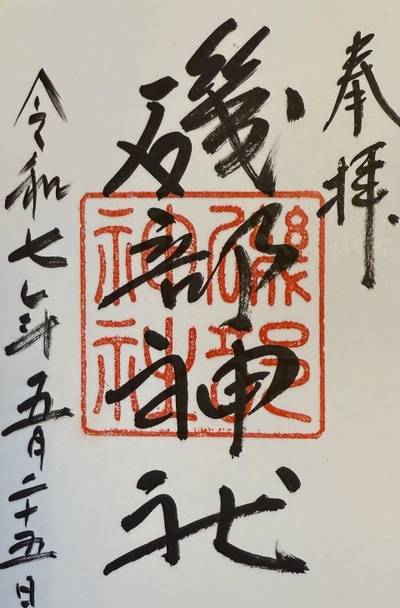 奉拝
磯部神社
令和七年五月二十五日